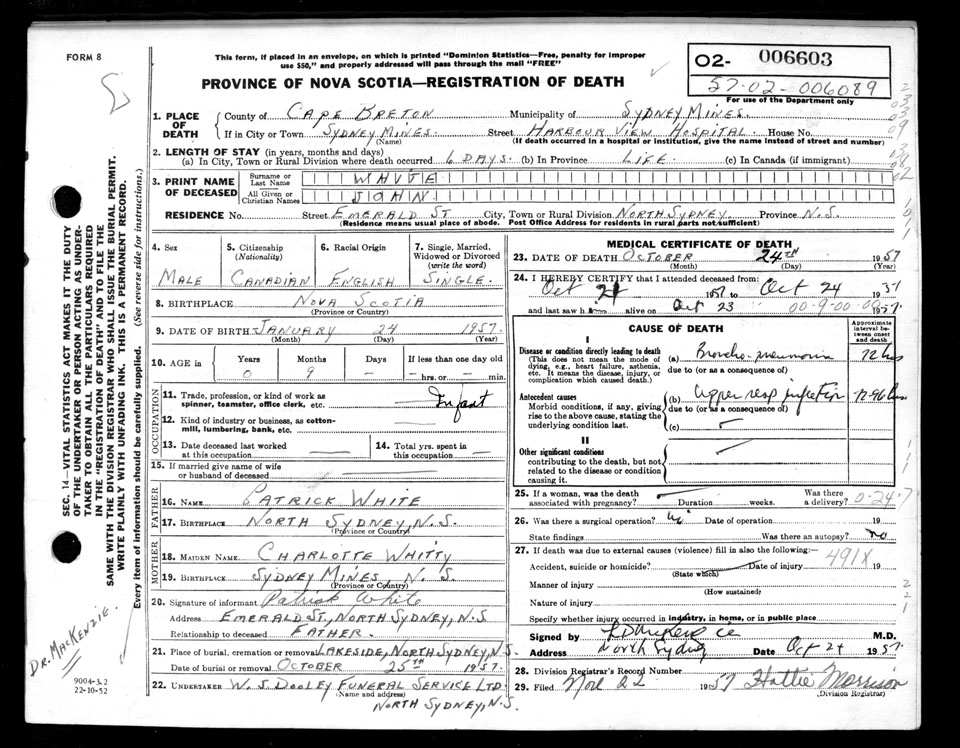 FORM 8
This form, if placed in an envelope, on which is printed "Dominion Statistics—Free, penalty for improper
use $50," and properly addressed will pass through the mail "FREE"
PROVINCE OF NOVA SCOTIA—REGISTRATION OF DEATH
02- 006603
57-02-006089
For use of the Department only
1. PLACE OF DEATH
County of CAPE BRETON Municipality of SYDNEY MINES.
If in City or Town SYDNEY MINES. Street HARBOUR VIEW HOSPITAL. House No.
(Name) (If death occurred in a hospital or institution, give the name instead of street and number)
2. LENGTH OF STAY (in years, months and days)
(a) In City, Town or Rural Division where death occurred 6 DAYS. (b) In Province LIFE. (c) In Canada (if immigrant)
3. PRINT NAME OF DECEASED
Surname or Last Name WHITE
All Given or Christian Names JOHN
RESIDENCE No. Street EMERALD ST City, Town or Rural Division NORTH SYDNEY Province N.S.
(Residence means usual place of abode. Post Office Address for residents in rural parts not sufficient)
4. Sex MALE
5. Citizenship (Nationality) CANADIAN
6. Racial Origin ENGLISH
7. Single, Married, Widowed or Divorced (write the word) SINGLE.
8. BIRTHPLACE NOVA SCOTIA
(Province or Country)
9. DATE OF BIRTH JANUARY 24 1957.
(Month) (Day) (Year)
10. AGE IN Years Months Days If less than one day old
0 9 – – hrs. or – min.
OCCUPATION
11. Trade, profession, or kind of work as spinner, teamster, office clerk, etc. Infant
12. Kind of industry or business, as cotton-mill, lumbering, bank, etc.
13. Date deceased last worked at this occupation
14. Total yrs. spent in this occupation
15. If married give name of wife or husband of deceased
FATHER
16. NAME PATRICK WHITE
17. BIRTHPLACE NORTH SYDNEY, N.S.
(Province or Country)
MOTHER
18. MAIDEN NAME CHARLOTTE WHITTY
19. BIRTHPLACE SYDNEY MINES N. S.
(Province or Country)
20. Signature of informant Patrick White
Address EMERALD ST., NORTH SYDNEY, N.S
Relationship to deceased FATHER.
21. Place of burial, cremation or removal LAKESIDE, NORTH SYDNEY, N.S
Date of burial or removal OCTOBER 25TH 1957.
22. UNDERTAKER W. S. DOOLEY FUNERAL SERVICE LTD.
(Name and address)
NORTH SYDNEY, N.S.
MEDICAL CERTIFICATE OF DEATH
23. DATE OF DEATH OCTOBER 24TH 1957
(Month) (Day) (Year)
24. I HEREBY CERTIFY that I attended deceased from:
Oct 21 1957 to Oct 24 1957
and last saw him alive on Oct 23 1957.
00-9-00-00
CAUSE OF DEATH
Approximate interval between onset and death
I
Disease or condition directly leading to death (a) Broncho-pneumonia 72 hrs
(This does not mean the mode of dying, e.g., heart failure, asthenia, etc. It means the disease, injury, or complication which caused death.)
due to (or as a consequence of)
Antecedent causes (b) Upper resp infection 72-96 hrs
Morbid conditions, if any, giving rise to the above cause, stating the underlying condition last.
due to (or as a consequence of)
(c)
II
Other significant conditions
contributing to the death, but not related to the disease or condition causing it.
25. If a woman, was the death associated with pregnancy? Duration weeks. Was there a delivery?
0-24-7
26. Was there a surgical operation? Date of operation 19
State findings Was there an autopsy? no
27. If death was due to external causes (violence) fill in also the following:—
491X
Accident, suicide or homicide? Date of injury 19
(State which)
Manner of injury
(How sustained)
Nature of injury
Specify whether injury occurred in industry, in home, or in public place
Signed by M.D.
Address North Sydney Date Oct 24 1957.
28. Division Registrar's Record Number
29. Filed Nov 22 1957 Hattie Morrison
(Division Registrar)
SEC. 14—VITAL STATISTICS ACT MAKES IT THE DUTY
OF THE UNDERTAKER OR PERSON ACTING AS UNDER-
TAKER TO OBTAIN ALL THE PARTICULARS REQUIRED
IN THE "REGISTRATION OF DEATH" AND TO FILE THE
SAME WITH THE DIVISION REGISTRAR WHO SHALL ISSUE THE BURIAL PERMIT.
WRITE PLAINLY WITH UNFADING INK. THIS IS A PERMANENT RECORD.
Every item of information should be carefully supplied. (See reverse side for instructions.)
DR. MACKENZIE.
9004-3.2
22-10-52